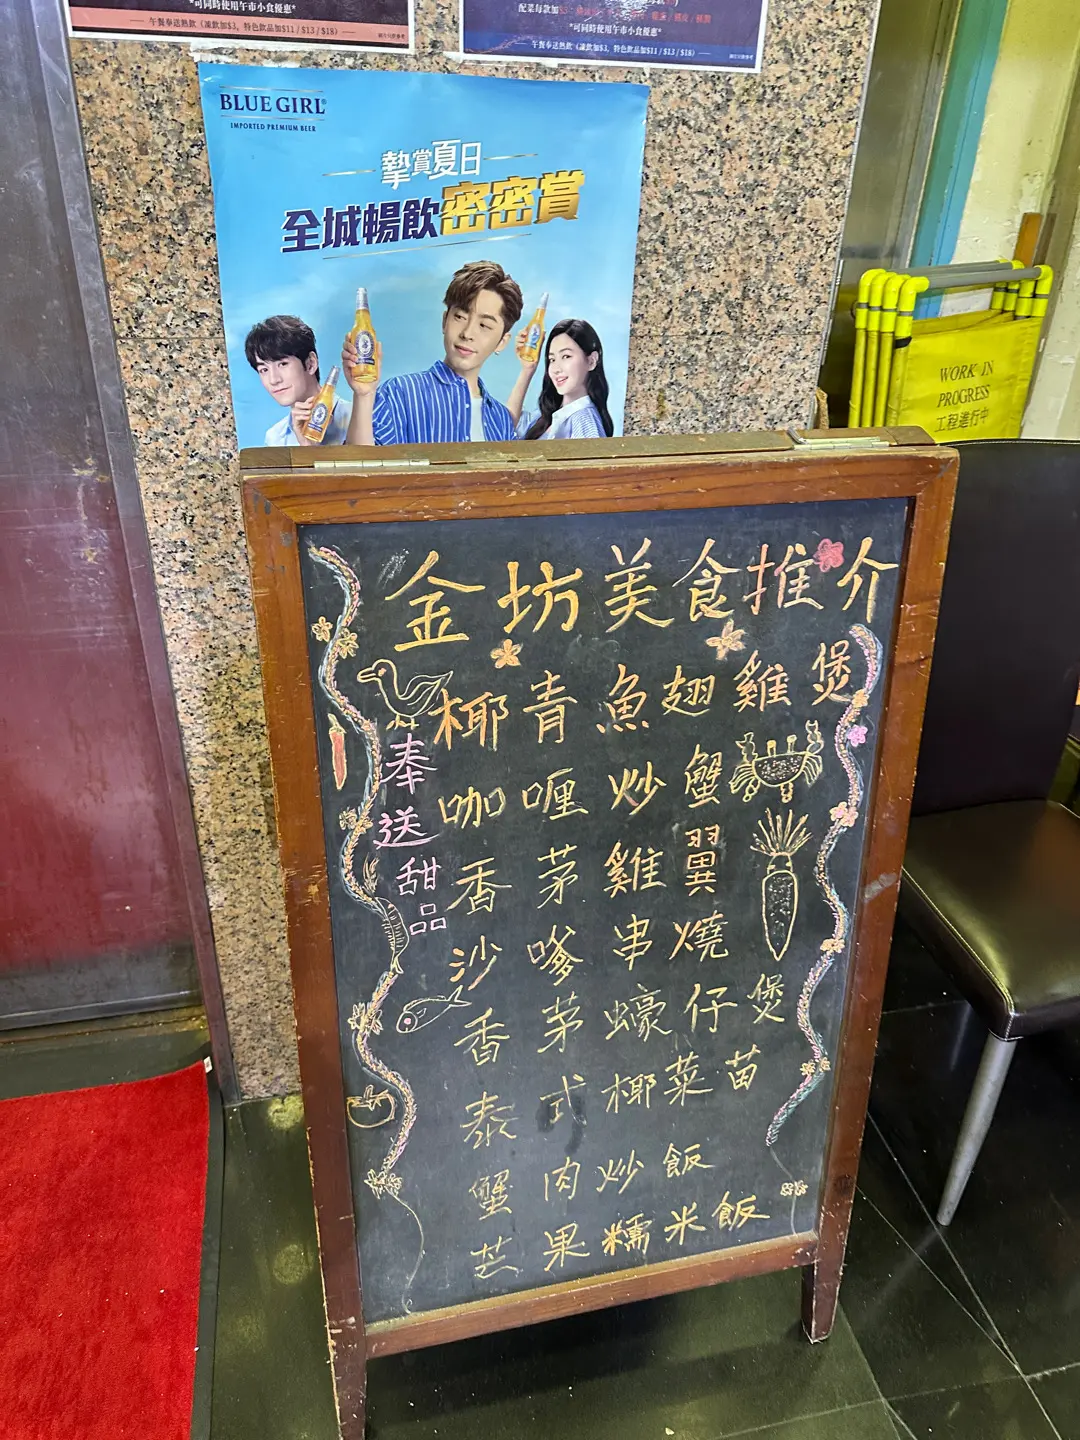 *可同時使用午市小食優惠*
午餐奉送熱飲（凍飲加$3、特色飲品加$11 / $13 / $18）
*可同時使用午市小食優惠*
午餐奉送熱飲（凍飲加$3、特色飲品加$11 / $13 / $18）
BLUE GIRL®
IMPORTED PREMIUM BEER
摯賞夏日
全城暢飲密密賞
WORK IN
PROGRESS
工程進行中
金坊美食推介
椰青魚翅雞煲
咖喱炒蟹
香茅雞翼
沙嗲串燒
香茅蠔仔煲
泰式椰菜苗
蟹肉炒飯
芒果糯米飯
奉送甜品